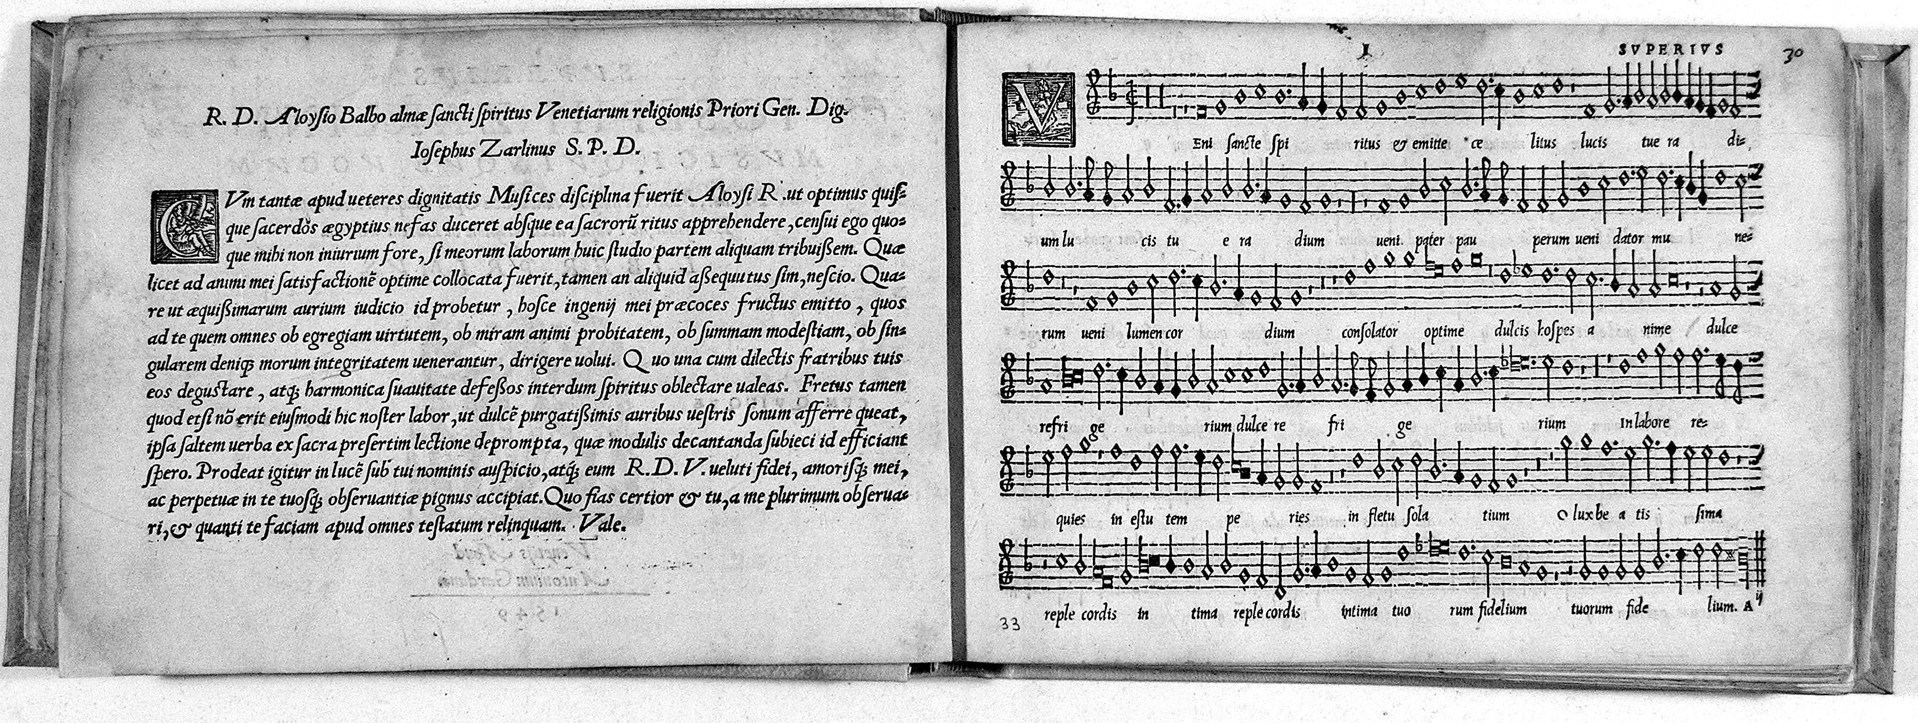 R. D. Aloysio Balbo almæ sancti spiritus Venetiarum religionis Priori Gen. Dig-
Iosephus Zarlinus S. P. D.
CVm tantæ apud ueteres dignitatis Musices disciplina fuerit Aloysi R. ut optimus quis-
que sacerdos ægyptius nefas duceret absque ea sacrorũ ritus apprehendere, censui ego quo-
que mihi non iniurium fore, si meorum laborum huic studio partem aliquam tribuißem. Quæ
licet ad animi mei satisfactionẽ optime collocata fuerit, tamen an aliquid aßequutus sim, nescio. Qua-
re ut æquißimarum aurium iudicio id probetur, hosce ingenij mei præcoces fructus emitto, quos
ad te quem omnes ob egregiam uirtutem, ob miram animi probitatem, ob summam modestiam, ob sin-
gularem deniq; morum integritatem uenerantur, dirigere uolui. Quo una cum dilectis fratribus tuis
eos degustare, atq; harmonica suauitate defeßos interdum spiritus oblectare ualeas. Fretus tamen
quod etsi nõ erit eiusmodi hic noster labor, ut dulcẽ purgatißimis auribus uestris sonum afferre queat,
ipsa saltem uerba ex sacra presertim lectione deprompta, quæ modulis decantanda subieci id efficiant
spero. Prodeat igitur in lucẽ sub tui nominis auspicio, atq; eum R. D. V. ueluti fidei, amorisq; mei,
ac perpetuæ in te tuosq; obseruantiæ pignus accipiat. Quo fias certior & tu, a me plurimum obserua-
ri, & quanti te faciam apud omnes testatum relinquam. Vale.
I SVPERIVS 30
VEni sancte spi ritus & emitte cœ litus lucis tue ra di-
um lu cis tu e ra dium ueni pater pau perum ueni dator mu ne-
rum ueni lumen cor dium consolator optime dulcis hospes a nime dulce
refri ge rium dulce re fri ge rium In labore re-
quies in estu tem pe ries in fletu sola tium O lux be a tis sima
reple cordis in tima reple cordis intima tuo rum fidelium tuorum fide lium. A ij
33